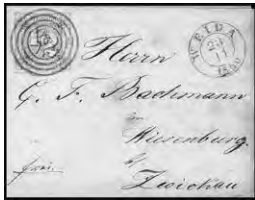 WEIDA
29
11
Herrn
G. F. Bachmann
in
Wiesenburg
b/
Zwickau
frei.